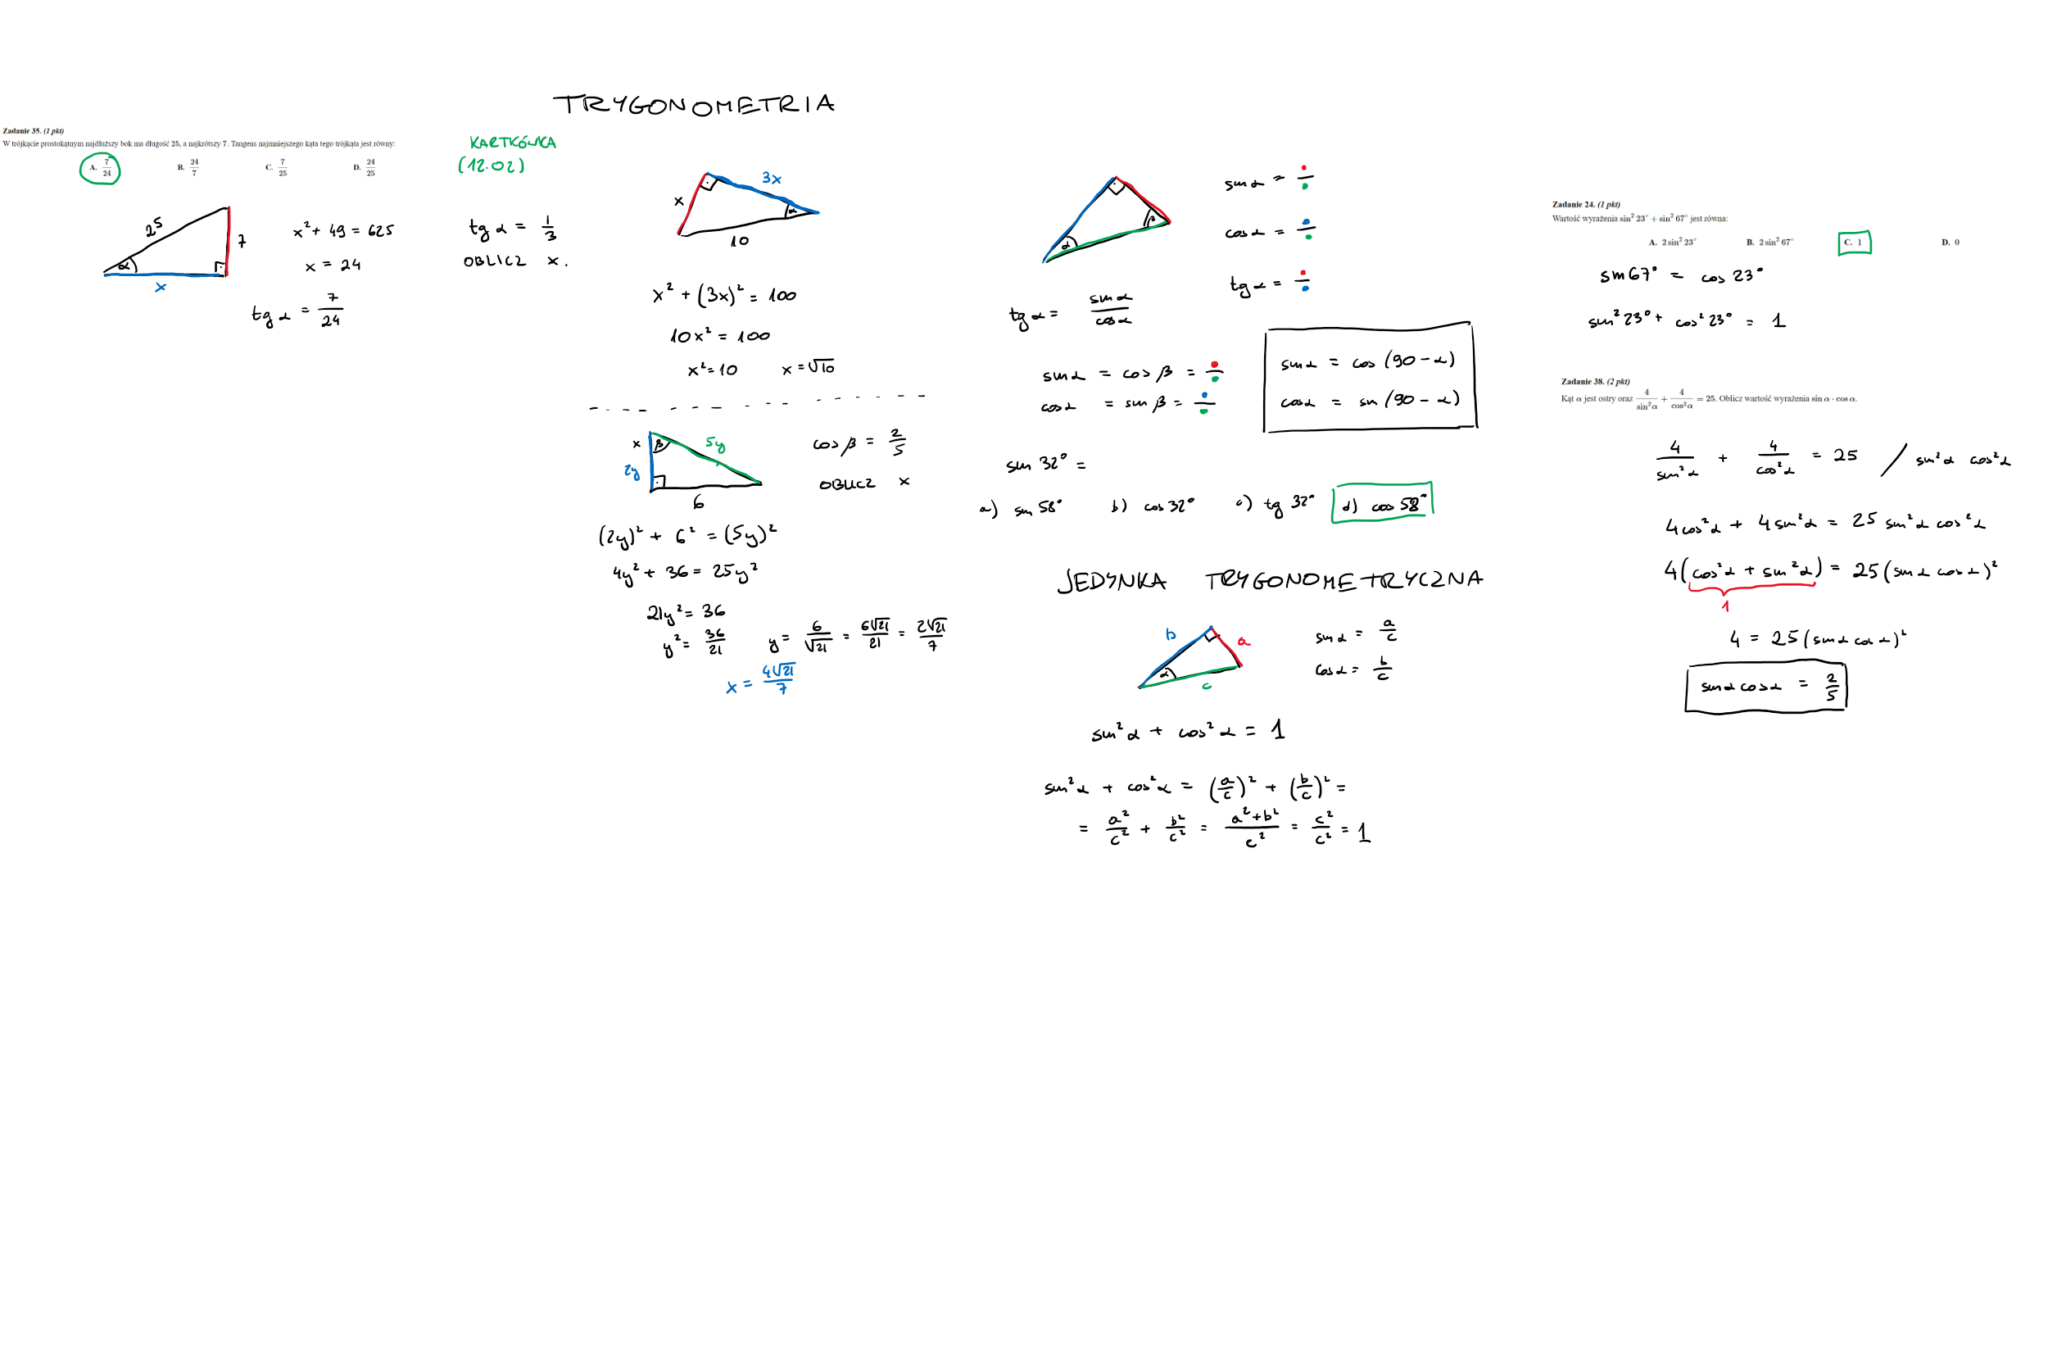 TRYGONOMETRIA
Zadanie 35. (1 pkt)
W trójkącie prostokątnym najdłuższy bok ma długość 25, a najkrótszy 7. Tangens najmniejszego kąta tego trójkąta jest równy:
A. 7/24 B. 24/7 C. 7/25 D. 24/25
25
7
α
x
x² + 49 = 625
x = 24
tg α = 7/24
KARTKÓWKA
(12.02)
tg α = 1/3
OBLICZ x.
x
3x
α
10
x² + (3x)² = 100
10x² = 100
x² = 10 x = √10
x
β
5y
2y
6
cos β = 2/5
OBLICZ x
(2y)² + 6² = (5y)²
4y² + 36 = 25y²
21y² = 36
y² = 36/21 y = 6/√21 = 6√21/21 = 2√21/7
x = 4√21/7
α
β
sin α =
cos α =
tg α =
tg α = sin α/cos α
sin α = cos β =
cos α = sin β =
sin α = cos (90 - α)
cos α = sin (90 - α)
sin 32° =
a) sin 58° b) cos 32° c) tg 32° d) cos 58°
JEDYNKA TRYGONOMETRYCZNA
b
a
α
c
sin α = a/c
cos α = b/c
sin² α + cos² α = 1
sin² α + cos² α = (a/c)² + (b/c)² =
= a²/c² + b²/c² = a²+b²/c² = c²/c² = 1
Zadanie 24. (1 pkt)
Wartość wyrażenia sin² 23° + sin² 67° jest równa:
A. 2 sin² 23° B. 2 sin² 67° C. 1 D. 0
sin 67° = cos 23°
sin² 23° + cos² 23° = 1
Zadanie 38. (2 pkt)
Kąt α jest ostry oraz 4/sin² α + 4/cos² α = 25. Oblicz wartość wyrażenia sin α · cos α.
4/sin² α + 4/cos² α = 25 / sin² α cos² α
4 cos² α + 4 sin² α = 25 sin² α cos² α
4 (cos² α + sin² α) = 25 (sin α cos α)²
1
4 = 25 (sin α cos α)²
sin α cos α = 2/5